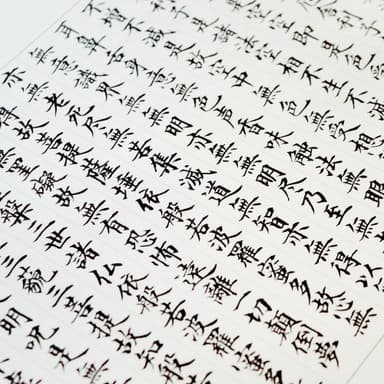 舎利子
空空即是色
子是諸法空相不生不滅
不増不減是故空中無色無受想
耳鼻舌身意無色声香味触法無眼
無意識界無無明亦無無明尽乃至無
亦無老死尽無苦集滅道無智亦無得以
得故菩提薩埵依般若波羅蜜多故心無
罣礙故無有恐怖遠離一切顛倒夢
槃三世諸仏依般若波羅蜜多
三藐三菩提故知般
明呪是無